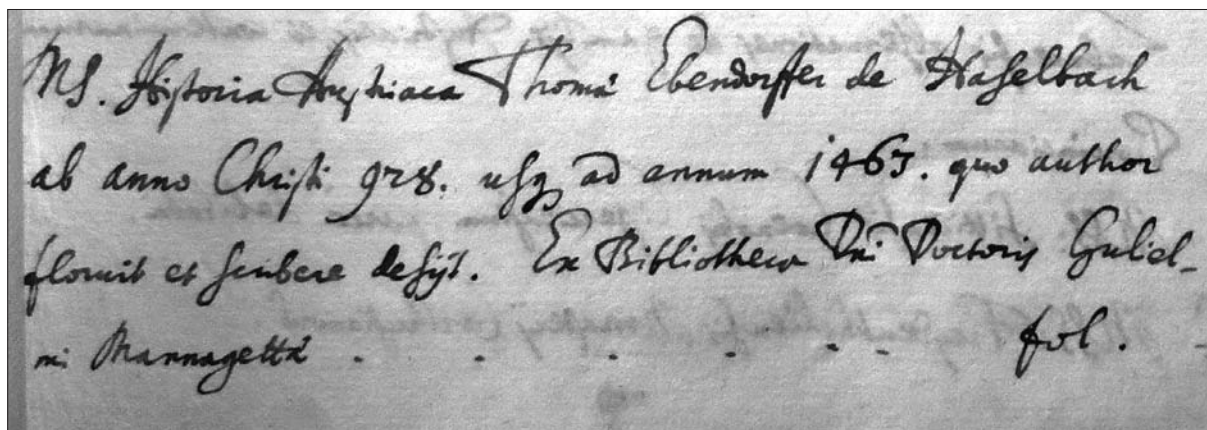 MS. Historia Austriaca Thomæ Ebendorffer de Haselbach
ab anno Christi 928. usq3 ad annum 1463. quo author
floruit et scribere desijt. Ex Bibliotheca Dni Doctoris Guliel-
mi Mannagettâ . . . . . . fol.